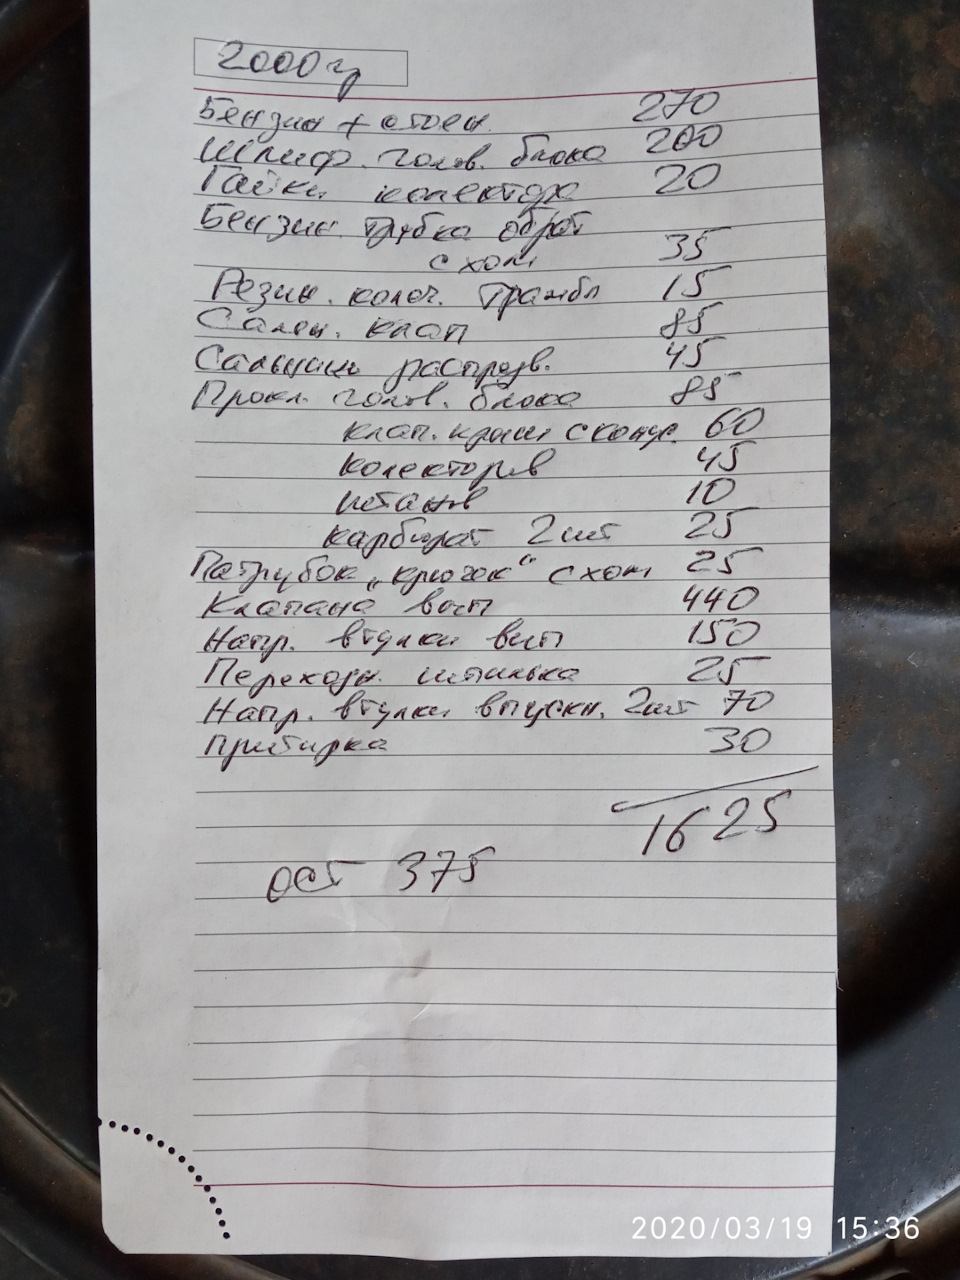 2000 гр
Бензин + стоян. 270
Шлиф. голов. блока 200
Гайки колектора 20
Бензин. трубка обрат
с хом 35
Резин. колеч. Трамбл 15
Сальн. клап 85
Сальники распредв. 45
Прокл. голов. блока 85
клап. крыш с конус. 60
колекторов 45
штанов 10
карбюрат 2 шт 25
Патрубок „крючок“ с хом 25
Клапана вып 440
Напр. втулки вып 150
Переходн. шпилька 25
Напр. втулки впускн. 2шт 70
притирка 30
1625
ост 375
2020/03/19 15:36